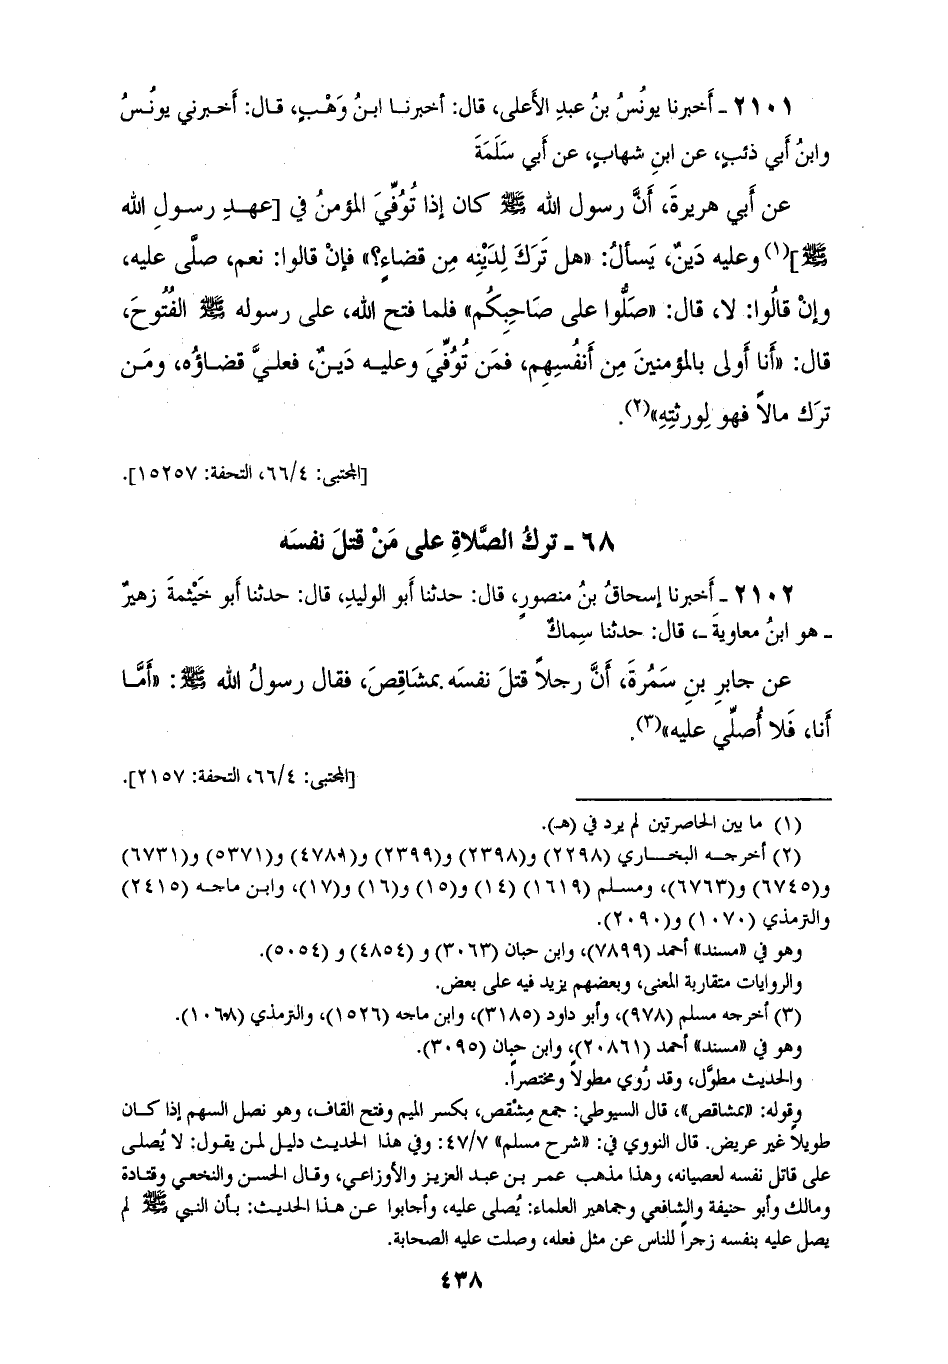 ٢١٠١ ـ أَخبرنا يونُسُ بنُ عبدِ الأَعلى، قال: أخبرنـا ابـنُ وَهْـبٍ، قـال: أَخـبرني يونُـسُ
وابنُ أَبي ذئبٍ، عن ابنِ شهابٍ، عن أَبي سَلَمَةَ
عن أَبي هريرةَ، أَنَّ رسول الله ﷺ كان إذا تُوُفِّيَ المؤمنُ في [عهـدِ رسـولِ الله
ﷺ](١) وعليه دَينٌ، يَسألُ: «هل تَرَكَ لِدَيْنِه مِن قضاءٍ؟» فإنْ قالوا: نعم، صلَّى عليه،
وإنْ قالُوا: لا، قال: «صَلُّوا على صَاحِبِكُم» فلما فتح الله، على رسوله ﷺ الفُتُوحَ،
قال: «أَنا أَولى بالمؤمنينَ مِن أَنفُسِهِم، فمَن تُوُفِّيَ وعليـه دَيـنٌ، فعلـيَّ قضـاؤُه، ومَـن
ترَك مالاً فهو لِورثتِهِ»(٢).
[المجتبى: ٦٦/٤، التحفة: ١٥٢٥٧].
٦٨ ـ تركُ الصَّلاةِ على مَنْ قتلَ نفسَه
٢١٠٢ ـ أَخبرنا إسحاقُ بنُ منصورٍ، قال: حدثنا أَبو الوليدِ، قال: حدثنا أَبو خَيْثمةَ زهيرٌ
ـ هو ابنُ معاويةَ ـ، قال: حدثنا سِماكٌ
عن جابرِ بنِ سَمُرةَ، أَنَّ رجلاً قتلَ نفسَه بمشَاقِصَ، فقال رسولُ الله ﷺ: «أَمَّـا
أَنا، فَلا أُصلِّي عليه»(٣).
[المجتبى: ٦٦/٤، التحفة: ٢١٥٧].
(١) ما بين الحاصرتين لم يرد في (هـ).
(٢) أخرجـه البخـاري (٢٢٩٨) و(٢٣٩٨) و(٢٣٩٩) و(٤٧٨١) و(٥٣٧١) و(٦٧٣١)
و(٦٧٤٥) و(٦٧٦٣)، ومسلم (١٦١٩) (١٤) و(١٥) و(١٦) و(١٧)، وابـن ماجـه (٢٤١٥)
والترمذي (١٠٧٠) و(٢٠٩٠).
وهو في «مسند» أحمد (٧٨٩٩)، وابن حبان (٣٠٦٣) و (٤٨٥٤) و (٥٠٥٤).
والروايات متقاربة المعنى، وبعضهم يزيد فيه على بعض.
(٣) أخرجه مسلم (٩٧٨)، وأبو داود (٣١٨٥)، وابن ماجه (١٥٢٦)، والترمذي (١٠٦٨).
وهو في «مسند» أحمد (٢٠٨٦١)، وابن حبان (٣٠٩٥).
والحديث مطوَّل، وقد رُوي مطولاً ومختصراً.
وقوله: «بمشاقص»، قال السيوطي: جمع مِشْقص، بكسر الميم وفتح القاف، وهو نصل السهم إذا كـان
طويلاً غير عريض. قال النووي في: «شرح مسلم» ٤٧/٧: وفي هـذا الحديـث دليـل لمـن يقـول: لا يُصلـى
على قاتل نفسه لعصيانه، وهـذا مذهـب عمـر بـن عبـد العزيـز والأوزاعـي، وقـال الحسـن والنخعـي وقتـادة
ومـالك وأبو حنيفة والشافعي وجماهير العلماء: يُصلى عليه، وأجابوا عـن هـذا الحديـث: بـأن النبـي ﷺ لم
يصل عليه بنفسه زجراً للناس عن مثل فعله، وصلت عليه الصحابة.
٤٣٨